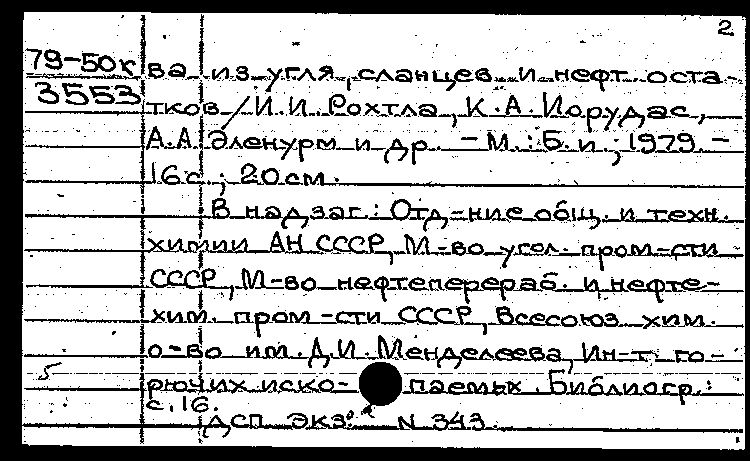 2
79-50к ва из угля, сланцев и нефт. оста-
3553 тков / И.И. Рохтла, К.А. Иорудас,
А.А. Эленурм и др. - М. : Б. и., 1979. -
16с.; 20см.
В надзаг.: Отд-ние общ. и техн.
химии АН СССР, М-во угол. пром-сти
СССР, М-во нефтеперераб. и нефте-
хим. пром-сти СССР, Всесоюз. хим.
о-во им. Д.И. Менделеева, Ин-т го-
5 рючих иско- паемых. Библиогр.:
с. 16.
ДСП. Экз. N 343.